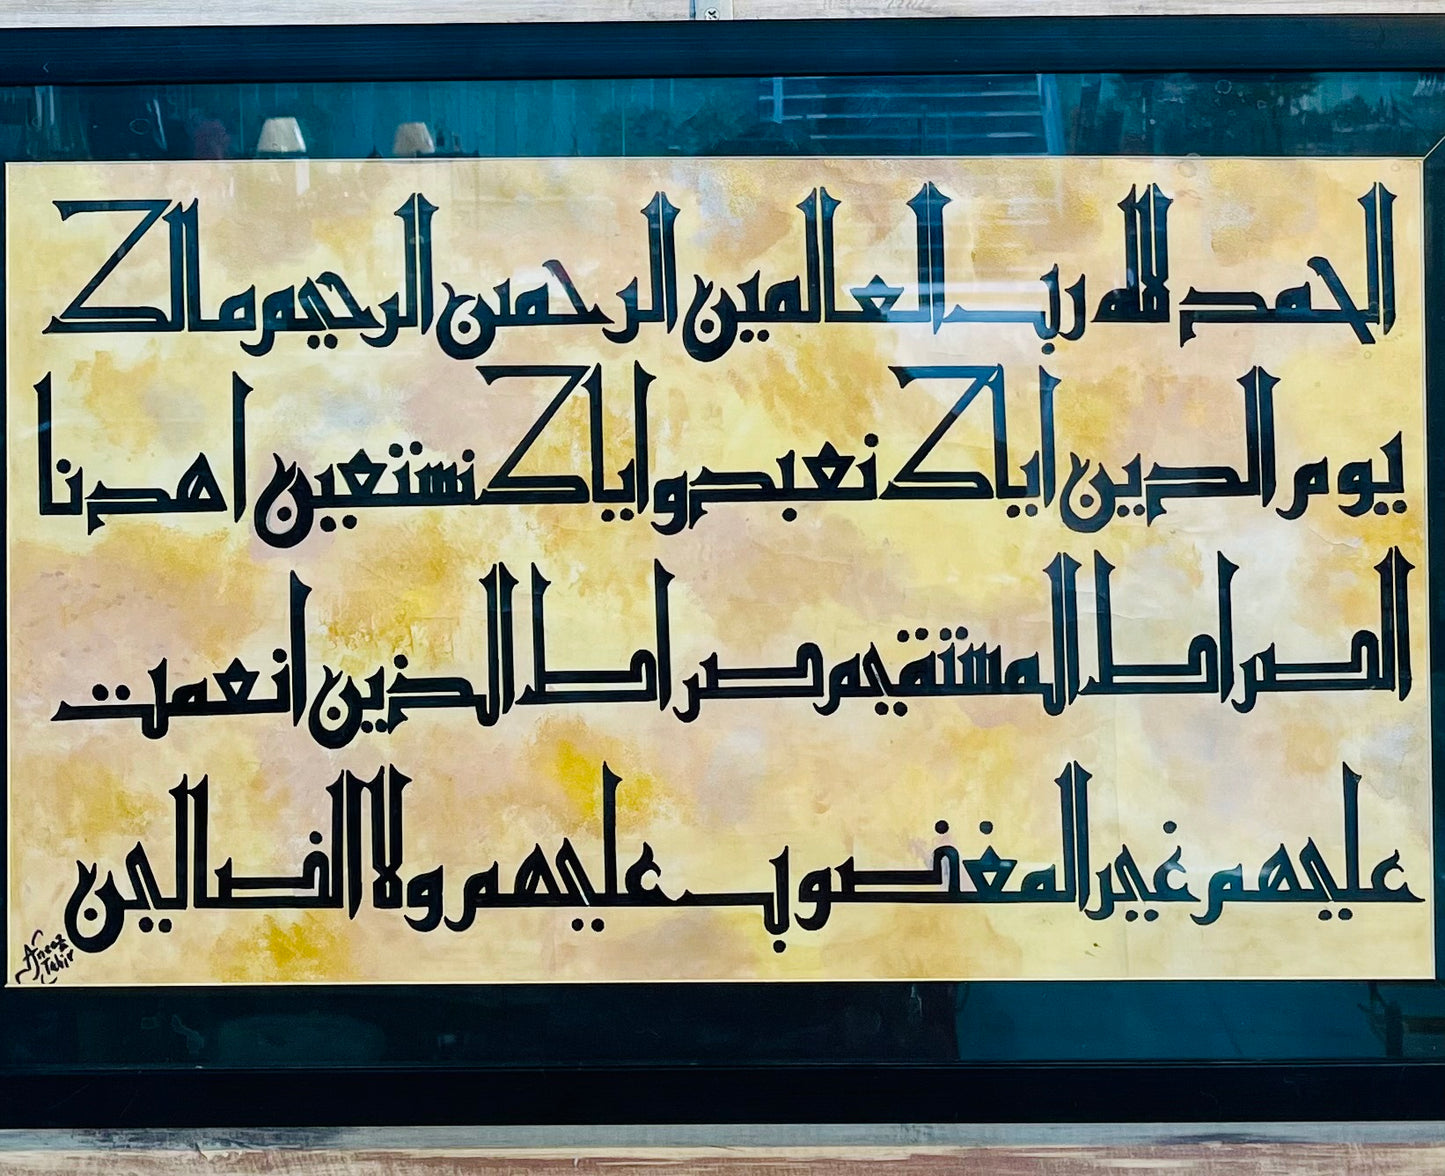 الحمد لله رب العالمين الرحمن الرحيم مالك
يوم الدين اياك نعبد و اياك نستعين اهدنا
الصراط المستقيم صراط الذين انعمت
عليهم غير المغضوب عليهم ولا الضالين
Aneeza
Tahir